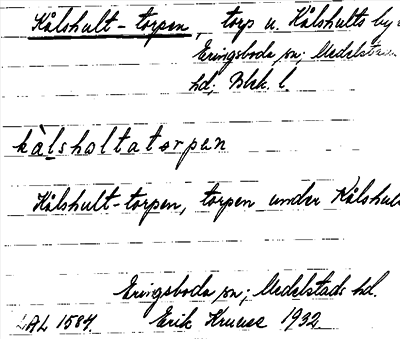 Kålshult-torpen, torp u. Kålshults by
Eringsboda sn; Medelstads
hd; Blek. l.
kàlsholtatorpen
Kålshult-torpen, torpen under Kålshult
Eringsboda sn; Medelstads hd.
LAL 1584. Erik Kruuse 1932